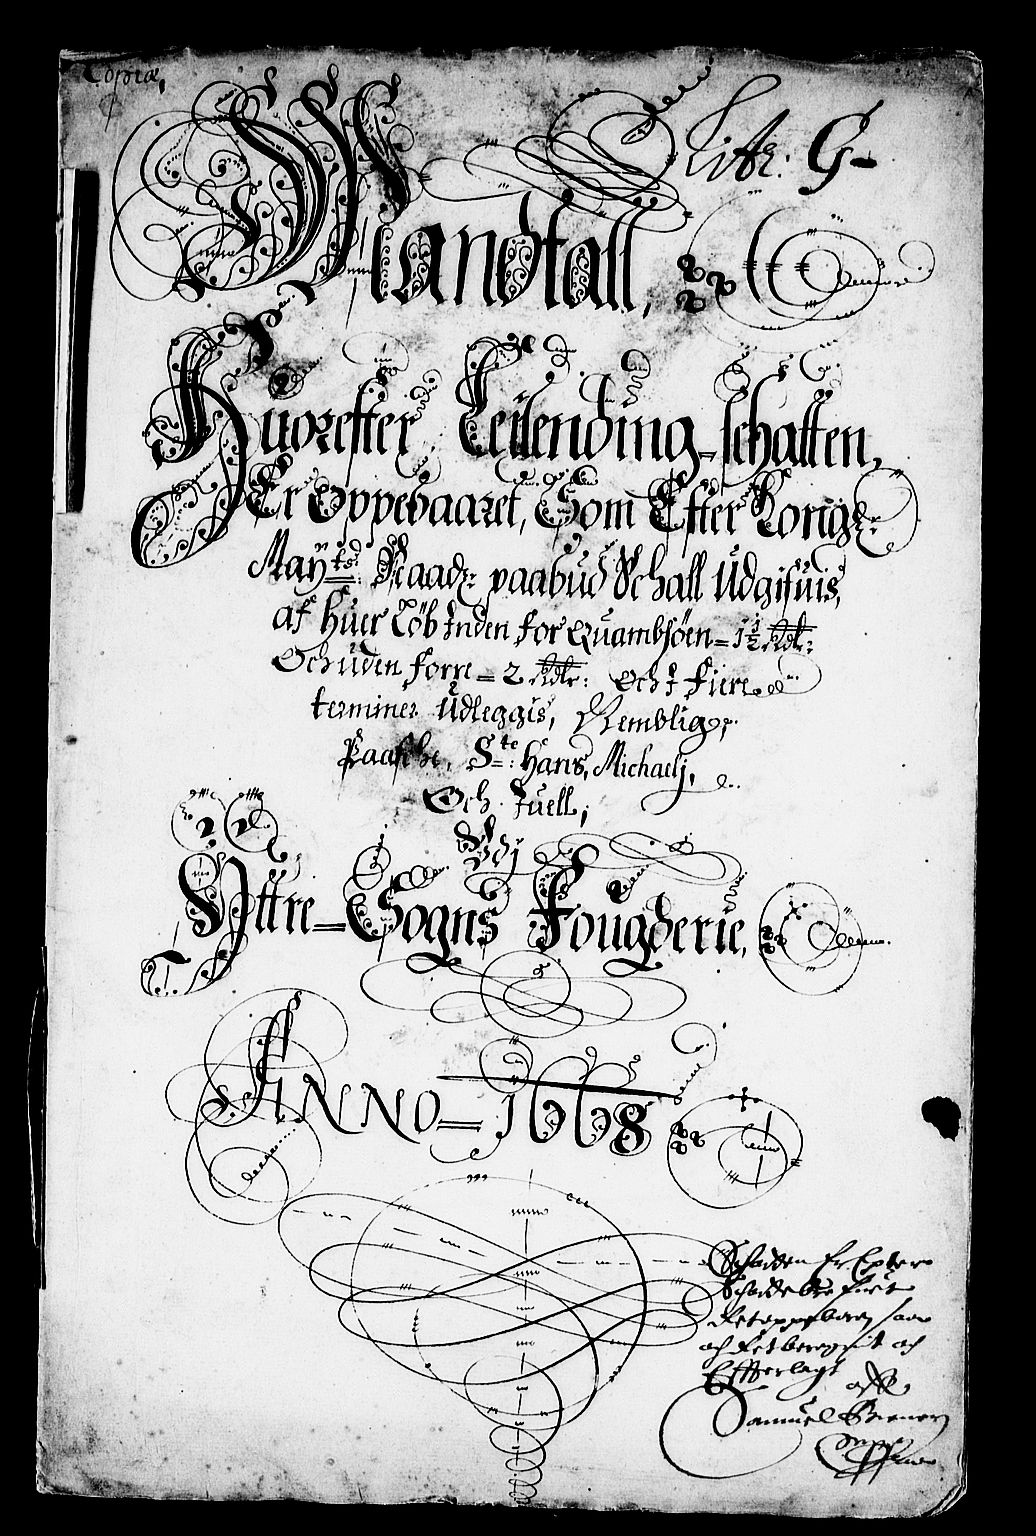 Copiæ,
Litr: G
Mandtall,
Huorefter Leilending-schatten,
Er Oppebaaret, Som Efter Kongl:
Mayts: Naadr: paabud Schall Udgifuis,
af Huer Löb Inden for Quambsöen = 1½ Rdlr:
Och uden forre = 2 Rdlr: Och I fiere
terminer Udleggis, Nemblig,
Paasche, Ste: Hans, Michaelj,
Och Juell,
Udj
Yttre-Sogns Fougderie,
ANNO = 1668
Schatten Er Epter
och
Effterlagt
Samuel